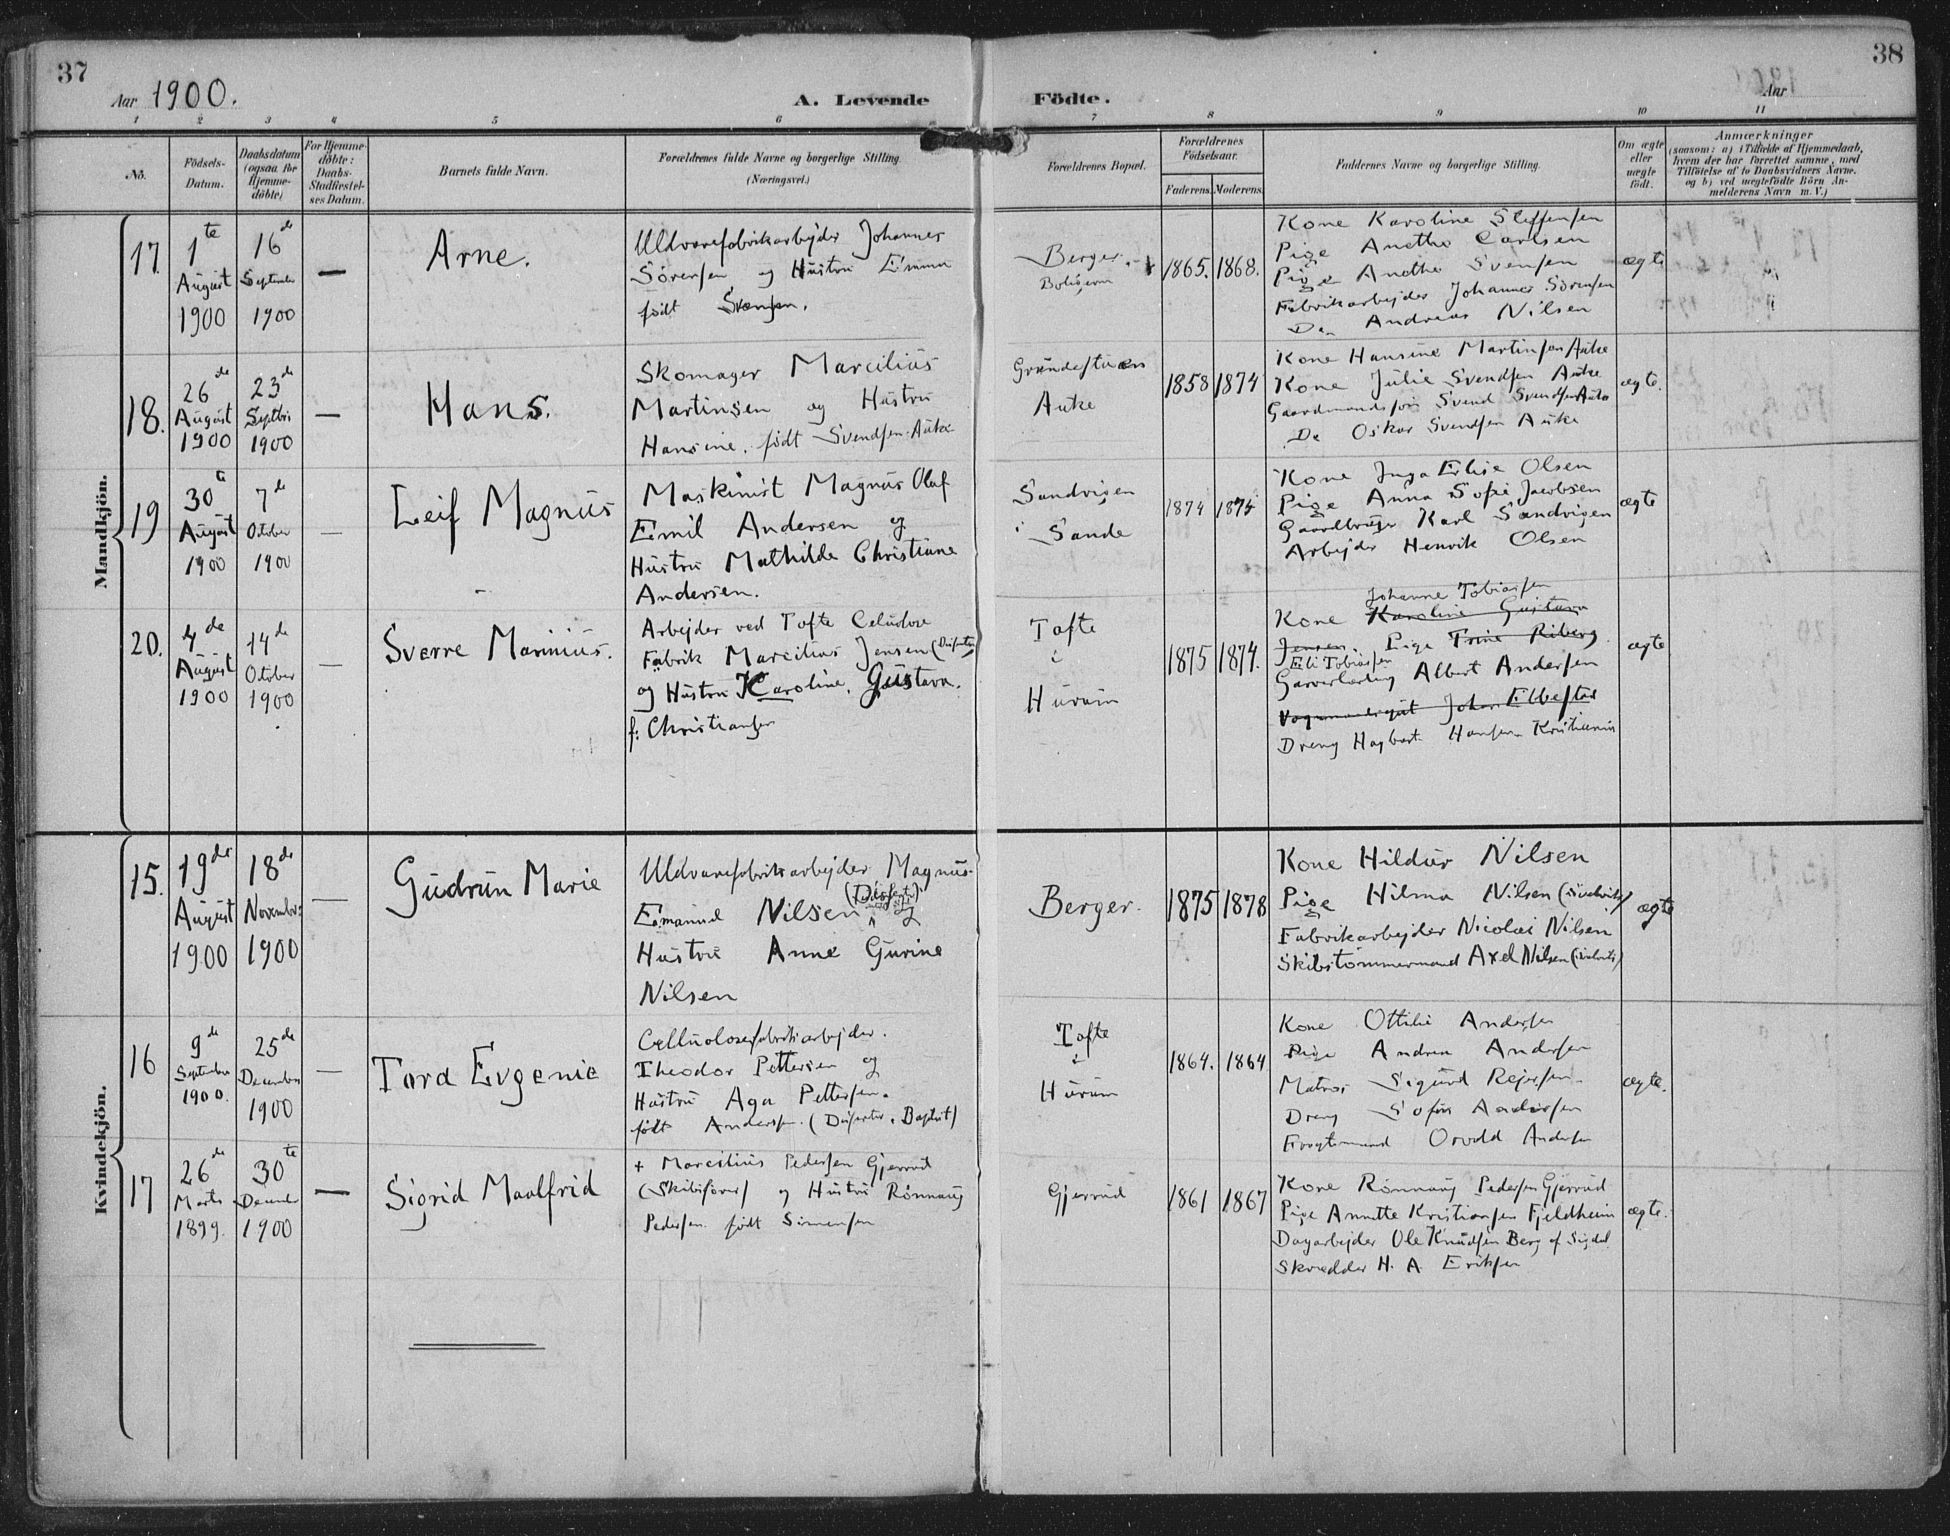 37
Aar 1900.
A. Levende
Födte.
Aar
38
1
2
3
4
5
6
7
8
9
10
11
No.
Födsels-
Datum.
Daabsdatum
(ogsaa for
Hjemme-
döbte)
For Hjemme-
döbte:
Daabs-
Stadfæstel-
ses Datum.
Barnets fulde Navn.
Forældrenes fulde Navne og borgerlige Stilling.
(Næringsvei.)
Forældrenes Bopæl.
Forældrenes
Födselsaar.
Faderens.
Moderens.
Faddernes Navne og borgerlige Stilling.
Om ægte
eller
uægte
födt.
Anmærkninger
(saasom: a) i Tilfælde af Hjemmedaab,
hvem der har forrettet samme, med
Tilföielse af to Daabsvidners Navne.
og b) ved uægtefödte Börn An-
melderens Navn m. V.)
Mandkjön.
17.
1te
August
1900
16de
September
1900
—
Arne.
Uldvarefabrikarbejder Johannes
Sörensen og Hustru Emma
födt Svensen.
Berger.
1865.
1868.
Kone Karoline Steffensen
Pige Anethe Carlsen
Pige Anethe Svensen
Fabrikarbejder Johannes Sörensen
Do Andreas Nilsen
ægte
18.
26de
August
1900
23de
Septbr
1900
—
Hans.
Skomager Marcilius
Martinsen og Hustru
Hansine födt Svendsen Auke
Auke
1858
1874
Kone Hansine Martinsen Auke
Kone Julie Svendsen Auke
Gaardmandssön Svend Svendsen Auke
Do Oskar Svendsen Auke
ægte.
19
30te
August
1900
7de
Oktober
1900
—
Leif Magnus
Maskinist Magnus Olaf
Emil Andersen og
Hustru Mathilde Christiane
Andersen.
Sandvigen
i Sande
1874
1875
Kone Inga Elise Olsen
Pige Anna Sofie Jacobsen
Gaardbruger Karl Sandvigen
Arbejder Henrik Olsen
ægte
20.
4de
August
1900
14de
Oktober
1900
—
Sverre Marinius.
Arbejder ved Tofte Celulose
Fabrik Marcilius Jensen (Dissenter)
og Hustru Karoline Gustava.
f: Christiansen
Tofte
i
Hurum
1875
1874.
Johanne Tobiassen
Kone Karoline Gustava
Jensen. Pige Trine Riberg
Eli Tobiassen
Garverlærling Albert Andersen
Johan Ellefstad
Dreng Hagbart Hansen Kristiania
ægte
Kvindekjön.
15.
19de
August
1900
18de
November
1900
—
Gudrun Marie
Uldvarefabrikarbejder Magnus
(Dissenter)
Emanuel Nilsen og
Hustru Anne Gurine
Nilsen
Berger.
1875
1878
Kone Hildur Nilsen
Pige Hilma Nilsen
Fabrikarbejder Nicolai Nilsen
Skibstömmermand Axel Nilsen
ægte
16
9de
September
1900.
25de
December
1900
—
Tora Evgenie
Cellulosefabrikarbejder.
Theodor Pettersen og
Hustru Aga Pettersen.
födt Andersen. (Dissenter. Baptist)
Tofte
i
Hurum
1864.
1864
Kone Ottilie Andersen
Pige Andrea Andersen
Matros Sigurd Rejersen
Dreng Sofus Andersen
Osvald Andersen
ægte.
17
26de
Marts
1899.
30te
December
1900
—
Sigrid Maalfrid
+ Marcilius Pedersen Gjerrud
(Skibsförer) og Hustru Rönnaug
Pedersen födt Simensen
Gjerrud
1861
1867
Kone Rönnaug Pedersen Gjerrud
Pige Annette Kristiansen Fjeldheim
Dagarbejder Ole Knudsen Berg af Sigdal
Skrædder H. A Eriksen
ægte.